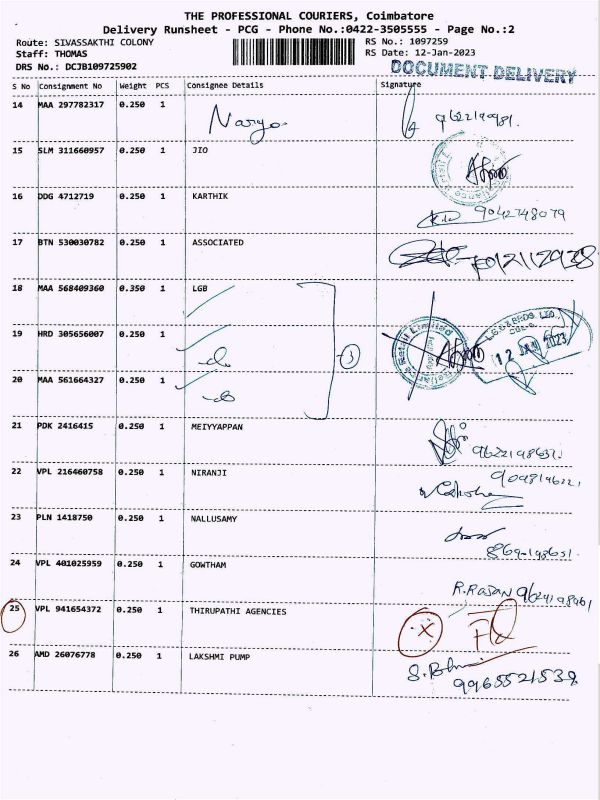 THE PROFESSIONAL COURIERS, Coimbatore
Delivery Runsheet - PCG - Phone No.:0422-3505555 - Page No.:2
Route: SIVASSAKTHI COLONY RS No.: 1097259
Staff: THOMAS RS Date: 12-Jan-2023
DRS No.: DCJB109725902 DOCUMENT DELIVERY
S No Consignment No Weight PCS Consignee Details Signature
14 MAA 297782317 0.250 1
15 SLM 311660957 0.250 1 JIO
16 DDG 4712719 0.250 1 KARTHIK
9042748079
17 BTN 530030782 0.250 1 ASSOCIATED
18 MAA 568409360 0.350 1 LGB
19 HRD 305656007 0.250 1
12 JAN 2023
20 MAA 561664327 0.250 1
21 PDK 2416415 0.250 1 MEIYYAPPAN
22 VPL 216460758 0.250 1 NIRANJI
23 PLN 1418750 0.250 1 NALLUSAMY
24 VPL 401025959 0.250 1 GOWTHAM
R.RAJAN
25 VPL 941654372 0.250 1 THIRUPATHI AGENCIES
X
26 AMD 26076778 0.250 1 LAKSHMI PUMP
9965521538